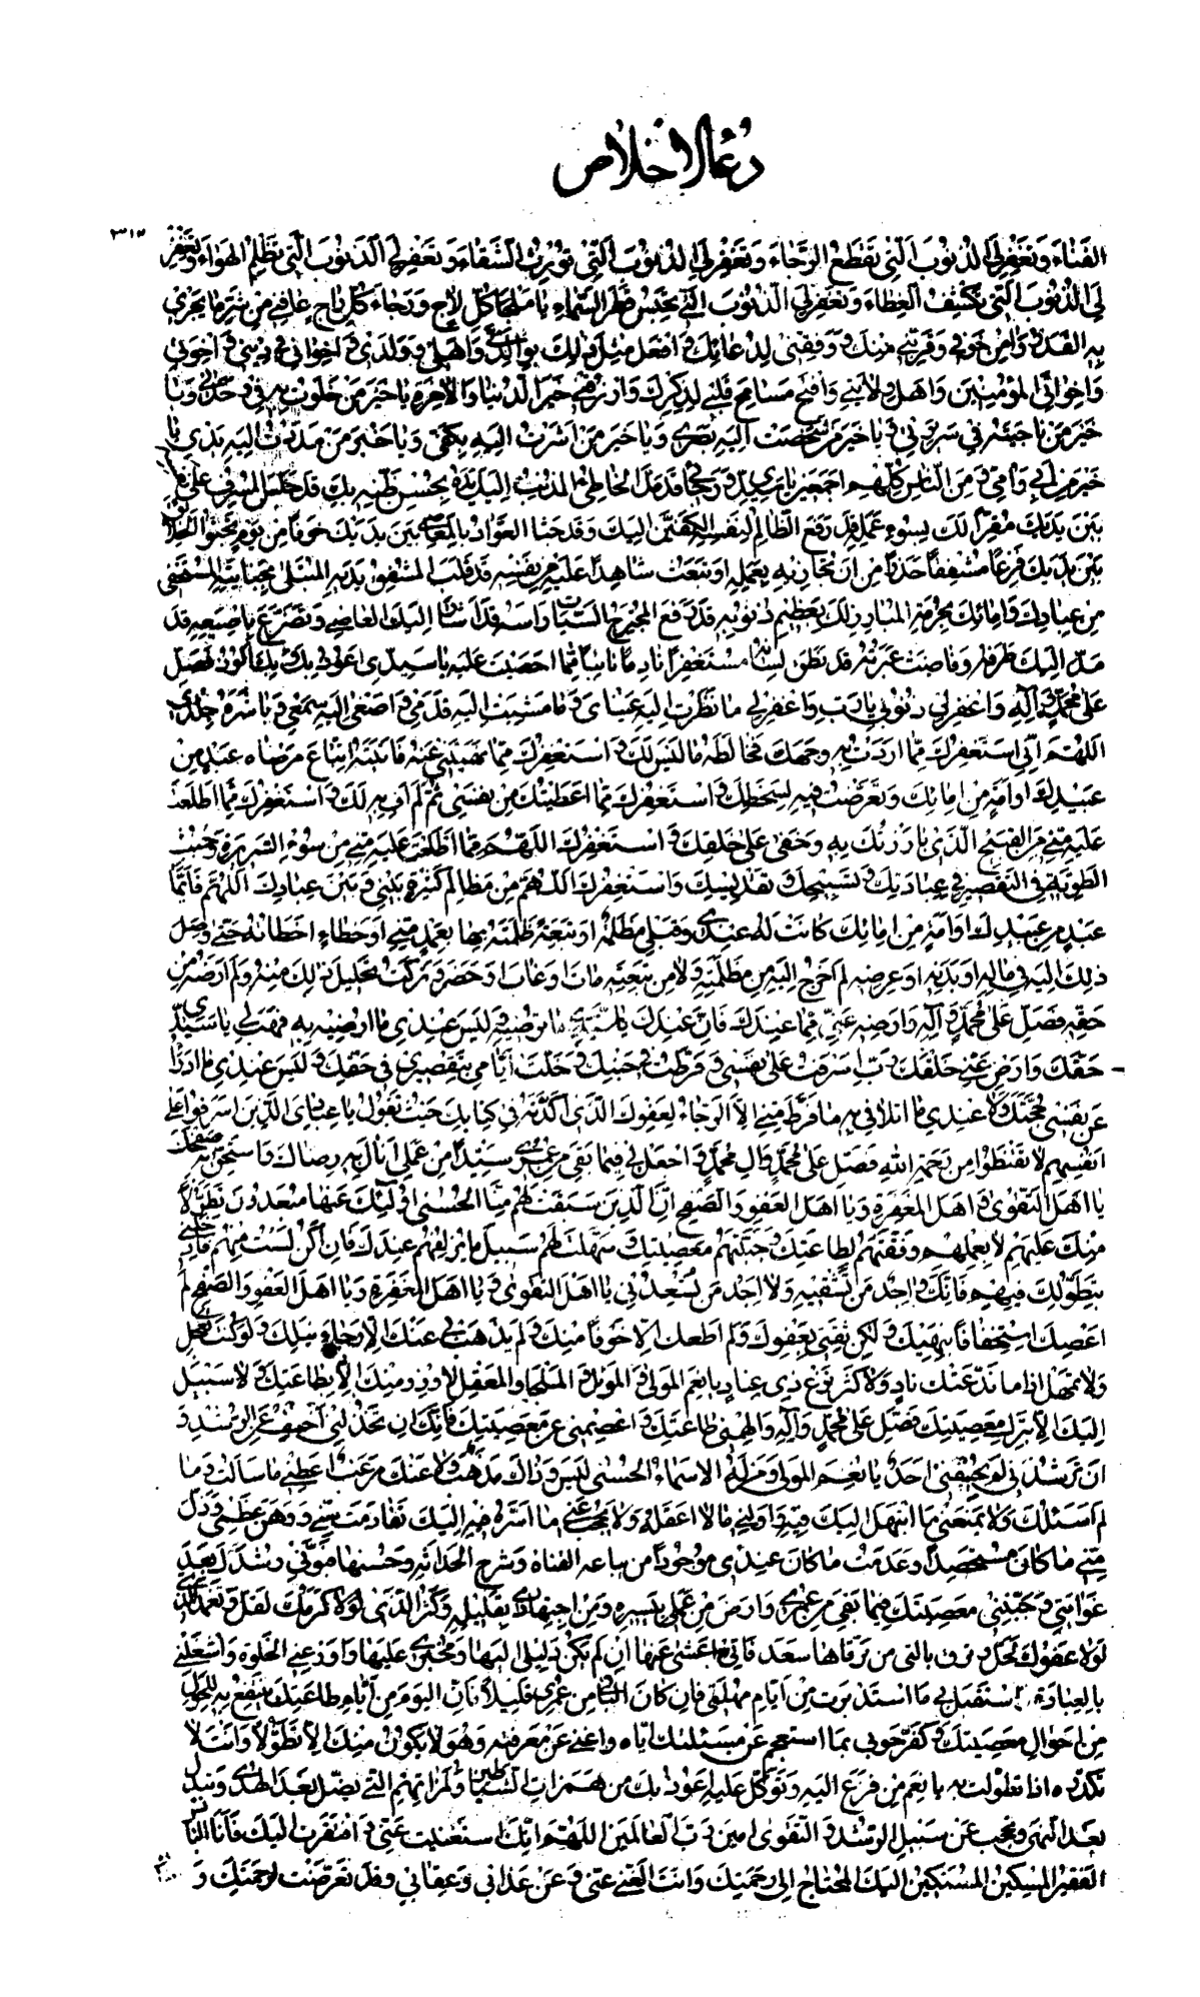 دعاء الاخلاص
٣١٣
الفناء وتغفر لي الذنوب التي تقطع الرجاء وتغفر لي الذنوب التي تورث الشقاء وتغفر لي الذنوب التي تظلم الهواء وتغفر
لي الذنوب التي تكشف الغطاء وتغفر لي الذنوب التي تحبس قطر السماء يا ملجأ كل لاج ورجاء كل راج عافني من شر ما يجري
به القدر وامن خوفي وقربني منك ووفقني لدعائك وافعل مثل ذلك بوالدي واهلي وولدي واخواني في ديني واخوتي
واخواني المؤمنين واهل ولايتي وافتح مسامع قلبي لذكرك وارزقني خير الدنيا والاخرة يا خير من خلوت به في وحدتي ويا
خير من ناجيته في سريرتي ويا خير من شخصت اليه بصري ويا خير من اشرت اليه بكفي ويا خير من مددت اليه يدي يا
خير من ابي وامي ومن الناس كلهم اجمعين يا سيدي قد مد الخاطئ المذنب اليك يده بحسن ظنه بك قد جلس المسرف على نفسه
بين يديك مقرا لك بسوء عمله قد رفع الظالم لنفسه كفيه اليك وقد جثا العواد بالمعاصي بين يديك خوفا من يوم يجثو الخلائق
بين يديك فزعا مشفقا حذرا من ان تجازيه بعمله او تبعث شاهدا عليه من نفسه قد قلب المشفق يديه المبتلى بجنايته المستخفي
من عبادك وامائك بجرمه المبادر لك بعظيم ذنوبه قد رفع المجترح السيئات راسه قد اشار اليك العاصي وتضرع باصبعه قد
مد اليك طرفه وفاضت عبرته قد نطق لسانه مستغفرا نادما تائبا مما احصيت عليه يا سيدي اعوذ بك ان اكون فصل
على محمد وآله واغفر لي ذنوبي يا رب واغفر لي ما نظرت اليه عيناي وما مشيت اليه قدمي واصغى اليه سمعي وباشره جلدي
اللهم اني استغفرك مما اردت به وجهك فخالطه ما ليس لك واستغفرك مما نهيتني عنه فاتيته اتباع مرضاة عبد من
عبيدك او امة من امائك وتعرضت فيه لسخطك واستغفرك مما اعطيتك من نفسي ثم لم اف به لك واستغفرك مما اطلعت
عليه مني من القبيح الذي بارزتك به وخفي على خلقك واستغفرك اللهم مما اطلعت عليه مني من سوء السريرة وخبث
الطوية في التقصير في عبادتك وتسبيحك وتقديسك واستغفرك اللهم من مظالم كثيرة بيني وبين عبادك اللهم فايما
عبد من عبيدك او امة من امائك كانت له عندي وقبلي مظلمة او تبعة ظلمته بها بعمد مني او خطاء اخطأته حتى وصل
ذلك اليه في ماله او بدنه او عرضه لم اخرج اليه من مظلمته ولا من تبعته مات او غاب او حضر وتركت تحليل ذلك منه ولم ارضه من
حقه فصل على محمد وآله وارضه عني مما عندك فان عندك يا سيدي ما ترضيه وليس عندي ما ارضيه به فهب لي يا سيدي
حقك وارض عني خلقك رب اسرفت على نفسي وفرطت في جنبك وخلت ايامي بتقصيري في حقك وليس عندي ما ادرأ
عن نفسي محنتك ولا عندي ما اتلافى به ما فرط مني الا الرجاء لعفوك الذي اكدته في كتابك حيث تقول يا عبادي الذين اسرفوا على
انفسهم لا تقنطوا من رحمة الله فصل على محمد وآل محمد واجعل لي فيما بقي من عمري سيدا من عملي انال به رضاك واستحق به صفحك
يا اهل التقوى واهل المغفرة ويا اهل العفو والصفح ان الذين سبقت لهم منا الحسنى اولئك عنها مبعدون تطولا
منك عليهم لا بعملهم وفقتهم لطاعتك وجنبتهم معصيتك وسهلت لهم سبيل ما يزلفهم عندك فان اكن لست منهم فادخلني
بتطولك فيهم فانك واجد من تشقيه ولا اجد من يسعدني يا اهل التقوى ويا اهل المغفرة ويا اهل العفو والصفح لم
اعصك استخفافا بنهيك ولكن ثقتي بعفوك ولم اطعك الا خوفا منك ولم يذهب بي عنك الا رجاء نيلك ولو كنت تعجل
ولا تمهل اذا ما ند عنك ناد ولا كثر نزغ ذي عناد يا نعم المولى والموئل والملجأ والمعقل لا وزر منك الا بطاعتك ولا سبيل
اليك الا بترك معصيتك فصل على محمد وآله والهمني طاعتك واعصمني عن معصيتك فانك ان تخذلني عن الرشد و
ان ترشدني لم احد يا نعم المولى ومن له الاسماء الحسنى ليس وراك مذهب ولا عنك مرغب اعطني ما سألتك وما
لم اسئلك ولا تمنعني ما ابتهل اليك فيه واولني ما لا اعقله ولا يخفى ما اسره فيه اليك تقادمت سني ووهن عظمي وذل
مني ما كان مستحصدا وعدمت ما كان عندي موجودا من باعد الفناء وشرخ الحداثة وحسنها رشدك بعد
غوايتي وجنبني معصيتك فيما بقي من عمري وارض من عملي بيسيره ومن اجتهادي بقليله وكثر الذي لولا كرمك لقل وتغمد
لولا عفوك بالتي من ترقاها سعد فاني اعشى عنها ان لم تكن دليلي اليها ومجبري عليها واوزعني الخلوة واشغلني
بالعبادة استقبل بي ما استدبرت من ايام مهلتي فان كان الباقي من عمري قليلا فان اليوم من ايام طاعتك ينفع به الحول
من احوال معصيتك وكفر حوبي بما استعجم عن مسئلتك اياه واغنني عن معرفته وهو لا يكون منك الا تطولا وانت لا
تكدره اذا تطولت به يا نعم من فزع اليه وتوكل عليه اعوذ بك من همزات الشياطين ولمزاتهم التي تضل بعد الهدى وتبدل
بعد النهى وتجنب عن سبيل الرشد والتقوى امين رب العالمين اللهم انك استغنيت عني وافتقرت اليك فانا البائس
الفقير المسكين المستكين اليك المحتاج الى رحمتك وانت الغني عني وعن عذابي وعقابي وقد تعرضت لرحمتك و